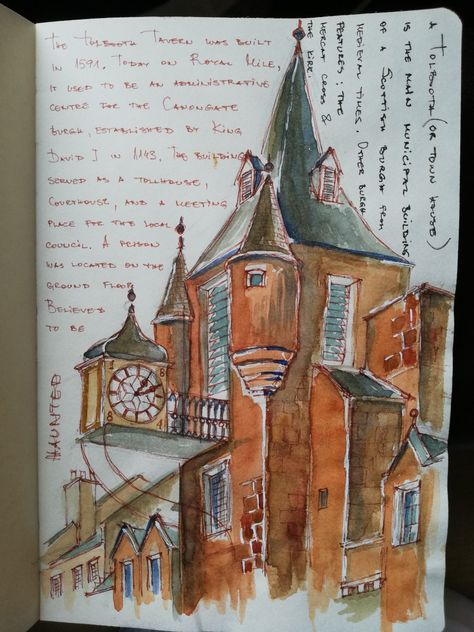 THE TOLBOOTH TAVERN WAS BUILT
IN 1591. TODAY ON ROYAL MILE,
IT USED TO BE AN ADMINISTRATIVE
CENTRE FOR THE CANONGATE
BURGH, ESTABLISHED BY KING
DAVID I IN 1143. THE BUILDING
SERVED AS A TOLLHOUSE,
COURTHOUSE, AND A MEETING
PLACE FOR THE LOCAL
COUNCIL. A PRISON
WAS LOCATED ON THE
GROUND FLOOR.
BELIEVED
TO BE
HAUNTED
A TOLBOOTH (OR TOWN HOUSE)
IS THE MAIN MUNICIPAL BUILDING
OF A SCOTTISH BURGH FROM
MEDIEVAL TIMES. OTHER BURGH
FEATURES: THE
MERCAT CROSS &
THE KIRK.